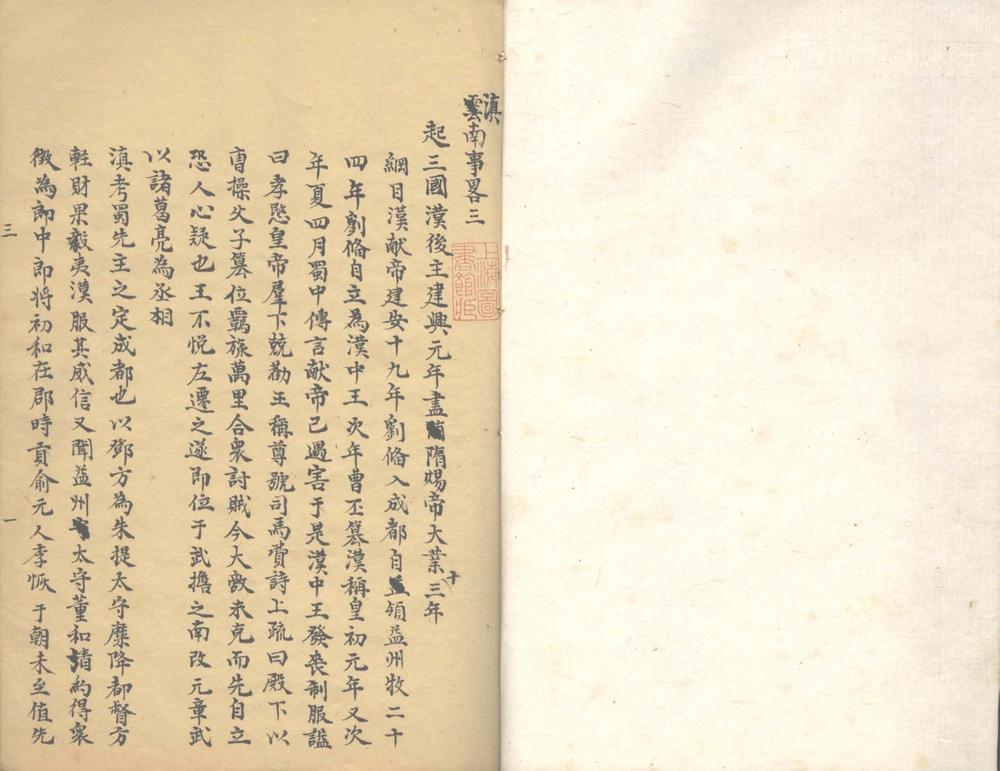 滇雲南事畧三
起三國漢後主建興元年盡隋煬帝大業十三年
綱目漢献帝建安十九年劉俻入成都自領益州牧二十
四年劉俻自立為漢中王次年曹丕篡漢稱皇初元年又次
年夏四月蜀中傳言献帝已遇害于是漢中王發喪制服諡
曰孝愍皇帝羣下競勸王稱尊號司馬費詩上疏曰殿下以
曹操父子篡位羈旅萬里合衆討賊今大敵未克而先自立
恐人心疑也王不悅左遷之遂即位于武擔之南改元章武
以諸葛亮為丞相
滇考蜀先主之定成都也以鄧方為朱提太守庲降都督方
輕財果毅夷漢服其威信又聞益州太守董和清約得衆
徵為郎中郎将初和在郡時貢俞元人李恢于朝未至值先
三
一
上海圖書館藏